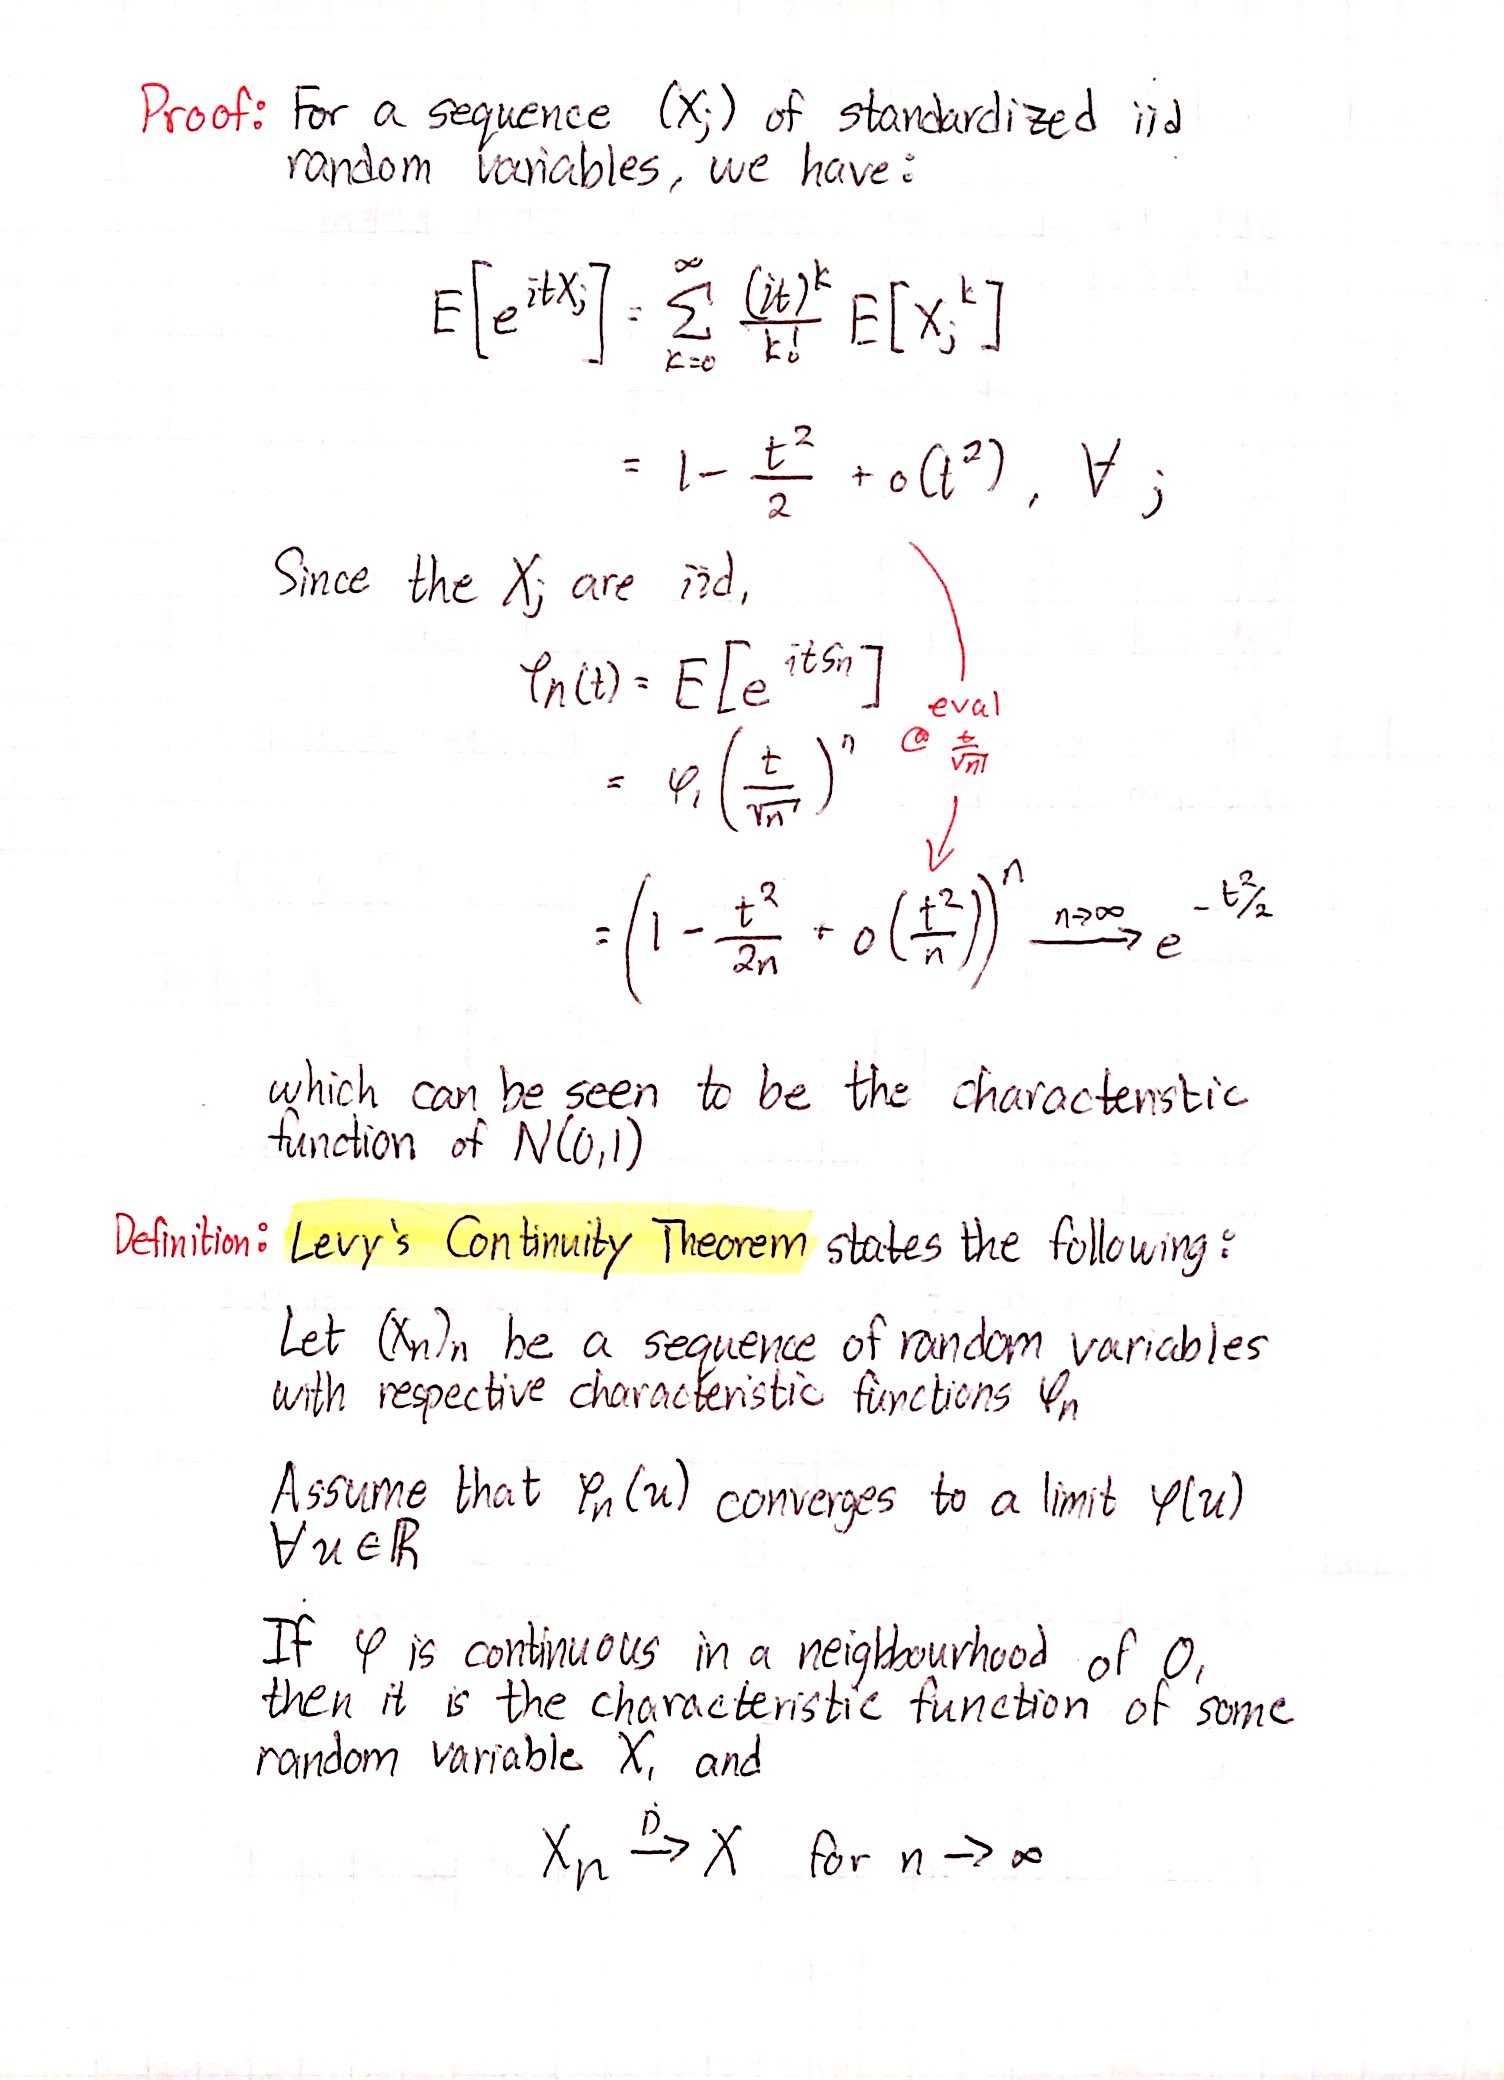 Proof: For a sequence (Xj) of standardized iid
random variables, we have:
E[e^{itXj}] = Σ_{k=0}^{∞} (it)^k/k! E[Xj^k]
= 1 - t²/2 + o(t²), ∀ j
Since the Xj are iid,
φn(t) = E[e^{itSn}]
= φ₁(t/√n)^n
eval
@ t/√n
= (1 - t²/2n + o(t²/n))^n n→∞ → e^{-t²/2}
which can be seen to be the characteristic
function of N(0,1)
Definition: Levy's Continuity Theorem states the following:
Let (Xn)n be a sequence of random variables
with respective characteristic functions φn
Assume that φn(u) converges to a limit φ(u)
∀u∈ℝ
If φ is continuous in a neighbourhood of 0,
then it is the characteristic function of some
random variable X, and
Xn →^D X for n → ∞